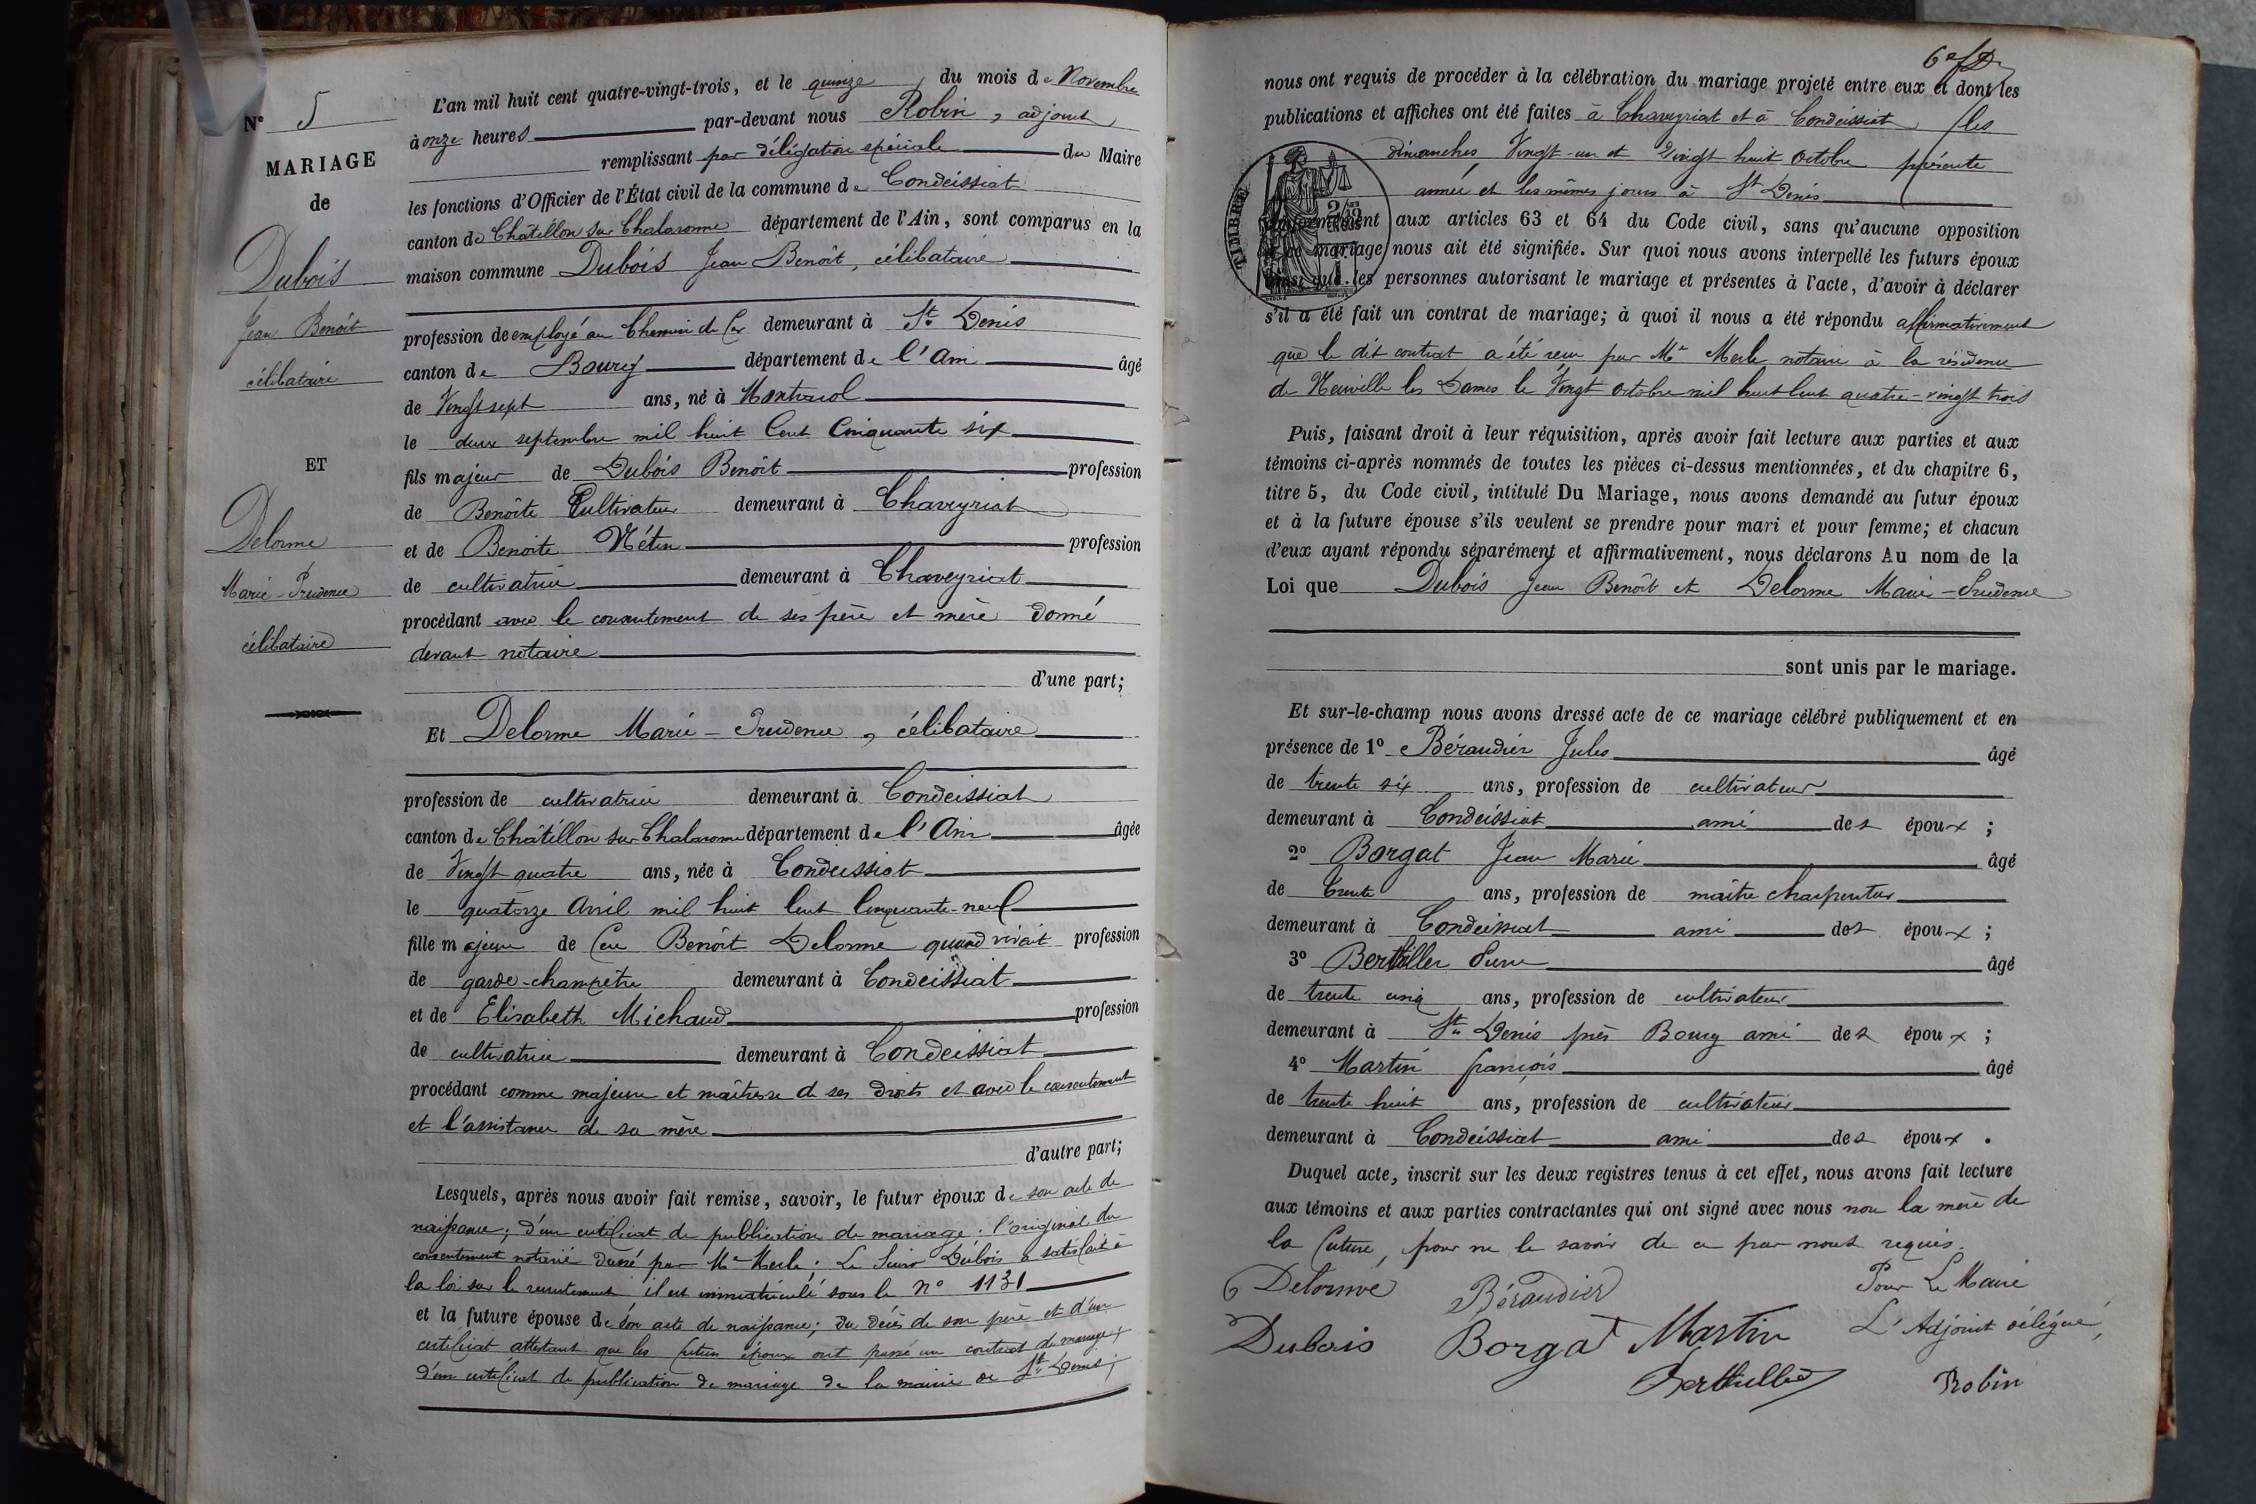 N° 5
MARIAGE
de
Dubois
Jean Benoît
célibataire
ET
Delorme
Marie-Prudence
célibataire
L'an mil huit cent quatre-vingt-trois, et le quinze, du mois de Novembre
à onze heures par-devant nous Robin, adjoint
remplissant par délégation spéciale du Maire
les fonctions d'Officier de l'État civil de la commune de Condeissiat
canton de Châtillon sur Chalaronne département de l'Ain, sont comparus en la
maison commune Dubois Jean Benoît, célibataire
profession de employé au Chemin de fer demeurant à St Denis
canton de Bourg département de l'Ain âgé
de Vingt sept ans, né à Montracol
le deux septembre mil huit Cent Cinquante six
fils majeur de Dubois Benoît profession
de Benoîte Cultivateur demeurant à Chaveyriat
et de Benoîte Métin profession
de cultivatrice demeurant à Chaveyriat
procédant avec le consentement de ses père et mère donné
devant notaire
d'une part;
Et Delorme Marie-Prudence, célibataire
profession de cultivatrice demeurant à Condeissiat
canton de Châtillon sur Chalaronne département de l'Ain âgée
de Vingt quatre ans, née à Condeissiat
le quatorze Avril mil huit Cent Cinquante-neuf
fille majeure de feu Benoît Delorme quand vivait profession
de garde-champêtre demeurant à Condeissiat
et de Elisabeth Michaud profession
de cultivatrice demeurant à Condeissiat
procédant comme majeure et maîtresse de ses droits et avec le consentement
et l'assistance de sa mère
d'autre part;
Lesquels, après nous avoir fait remise, savoir, le futur époux de son acte de
naissance; d'un certificat de publication de mariage; l'original du
consentement notarié dressé par Me Merle; Le Sieur Dubois a satisfait à
la loi sur le recrutement il est immatriculé sous le N° 1131
et la future épouse de son acte de naissance; du décès de son père et d'un
certificat attestant que les futurs époux ont passé un contrat de mariage;
d'un certificat de publication de mariage de la mairie de St Denis;
6e
nous ont requis de procéder à la célébration du mariage projeté entre eux et dont les
publications et affiches ont été faites à Chaveyriat et à Condeissiat les
dimanches Vingt-un et Vingt huit Octobre présente
année et les mêmes jours à St Denis
TIMBRE
conformément aux articles 63 et 64 du Code civil, sans qu'aucune opposition
à ce mariage nous ait été signifiée. Sur quoi nous avons interpellé les futurs époux
ainsi que les personnes autorisant le mariage et présentes à l'acte, d'avoir à déclarer
s'il a été fait un contrat de mariage; à quoi il nous a été répondu affirmativement
que le dit contrat a été reçu par Me Merle notaire à la résidence
de Neuville les Dames le Vingt Octobre mil huit Cent quatre-vingt trois
Puis, faisant droit à leur réquisition, après avoir fait lecture aux parties et aux
témoins ci-après nommés de toutes les pièces ci-dessus mentionnées, et du chapitre 6,
titre 5, du Code civil, intitulé Du Mariage, nous avons demandé au futur époux
et à la future épouse s'ils veulent se prendre pour mari et pour femme; et chacun
d'eux ayant répondu séparément et affirmativement, nous déclarons Au nom de la
Loi que Dubois Jean Benoît et Delorme Marie-Prudence
sont unis par le mariage.
Et sur-le-champ nous avons dressé acte de ce mariage célébré publiquement et en
présence de 1° Béraudier Jules âgé
de trente six ans, profession de cultivateur
demeurant à Condeissiat ami des époux;
2° Borgat Jean Marie âgé
de trente ans, profession de maître charpentier
demeurant à Condeissiat ami des époux;
3° Berthiller Pierre âgé
de trente cinq ans, profession de cultivateur
demeurant à St Denis près Bourg ami des époux;
4° Martin françois âgé
de trente huit ans, profession de cultivateur
demeurant à Condeissiat ami des époux.
Duquel acte, inscrit sur les deux registres tenus à cet effet, nous avons fait lecture
aux témoins et aux parties contractantes qui ont signé avec nous non la mère de
la future, pour ne le savoir de ce par nous requis.
Delorme Béraudier Pour Le Maire
Dubois Borgat Martin L'Adjoint délégué,
Robin